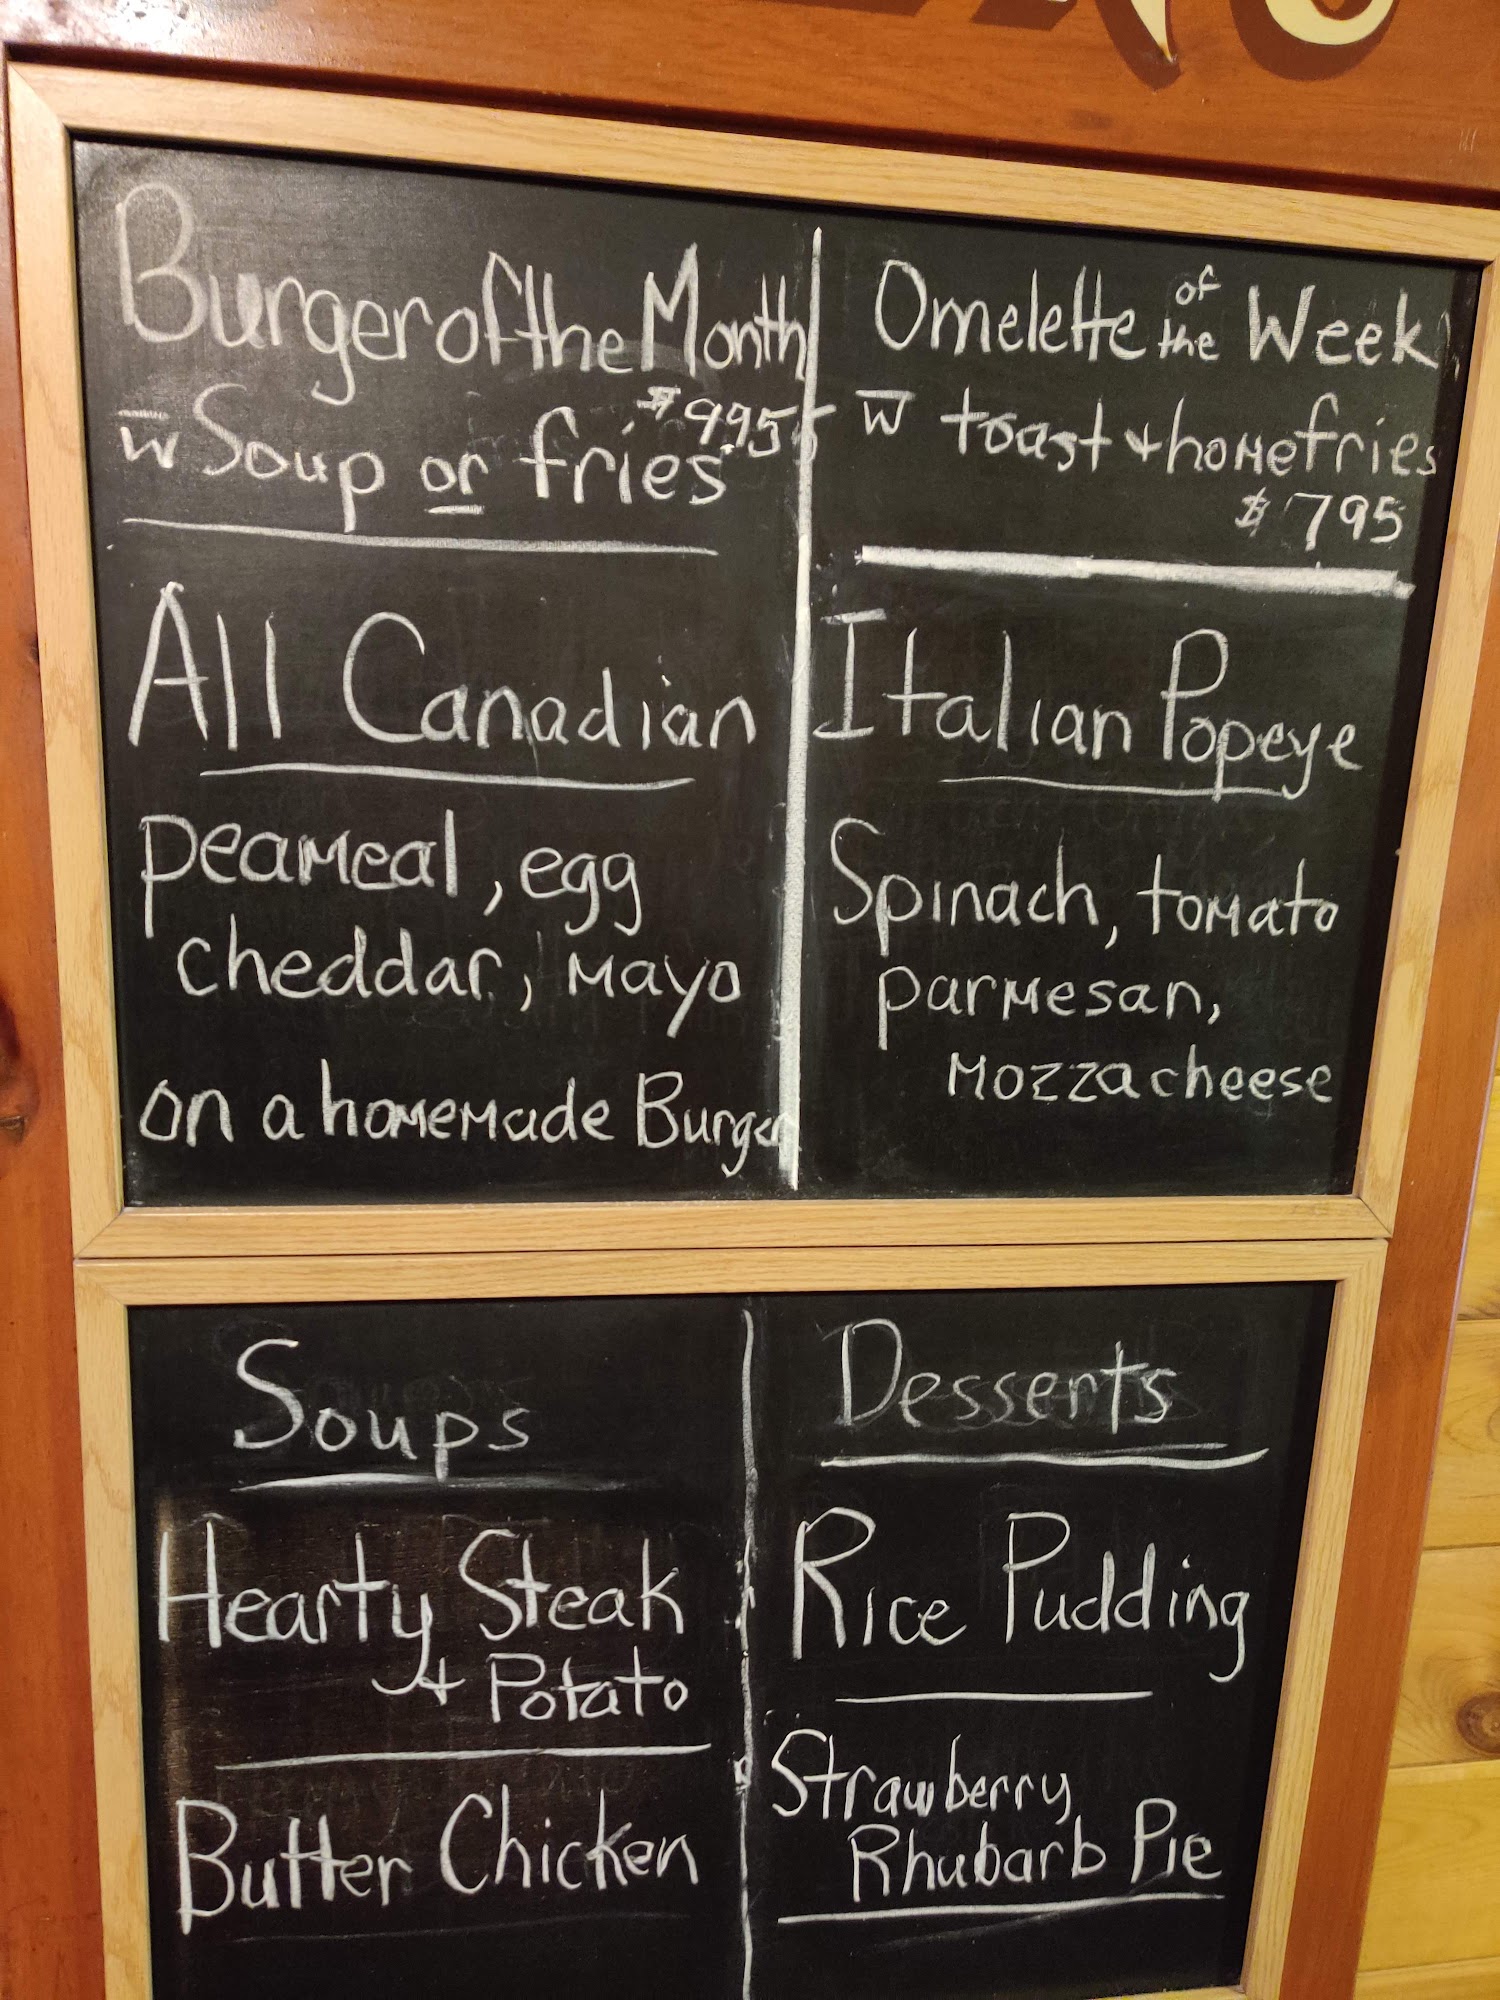 Burger of the Month
$995
w̅ Soup or fries
All Canadian
peameal, egg
cheddar, mayo
on a homemade Burger
Omelette of the Week
w̅ toast + homefries
$795
Italian Popeye
Spinach, tomato
parmesan,
mozza cheese
Soups
Hearty Steak
+ Potato
Butter Chicken
Desserts
Rice Pudding
Strawberry
Rhubarb Pie